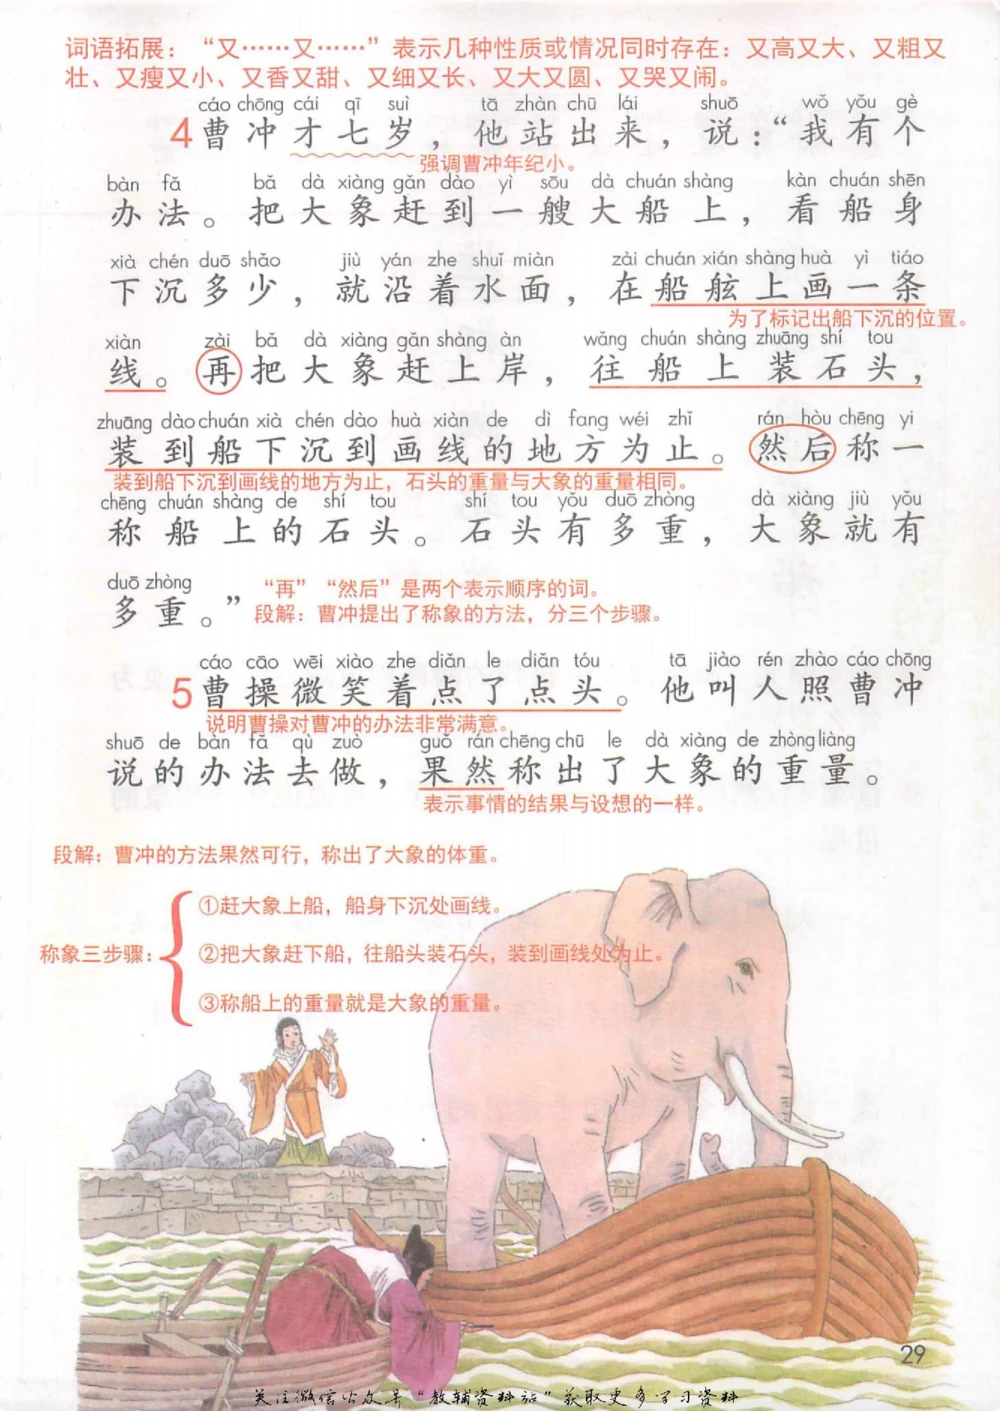 词语拓展：“又……又……”表示几种性质或情况同时存在：又高又大、又粗又
壮、又瘦又小、又香又甜、又细又长、又大又圆、又哭又闹。
cáo chōng cái qī suì tā zhàn chū lái shuō wǒ yǒu gè
4 曹冲才七岁，他站出来，说：“我有个
强调曹冲年纪小。
bàn fǎ bǎ dà xiàng gǎn dào yì sōu dà chuán shàng kàn chuán shēn
办法。把大象赶到一艘大船上，看船身
xià chén duō shǎo jiù yán zhe shuǐ miàn zài chuán xián shàng huà yì tiáo
下沉多少，就沿着水面，在船舷上画一条
为了标记出船下沉的位置。
xiàn zài bǎ dà xiàng gǎn shàng àn wǎng chuán shàng zhuāng shí tou
线。再把大象赶上岸，往船上装石头，
zhuāng dào chuán xià chén dào huà xiàn de dì fang wéi zhǐ rán hòu chēng yi
装到船下沉到画线的地方为止。然后称一
装到船下沉到画线的地方为止，石头的重量与大象的重量相同。
chēng chuán shàng de shí tou shí tou yǒu duō zhòng dà xiàng jiù yǒu
称船上的石头。石头有多重，大象就有
duō zhòng
多重。”
“再”“然后”是两个表示顺序的词。
段解：曹冲提出了称象的方法，分三个步骤。
cáo cāo wēi xiào zhe diǎn le diǎn tóu tā jiào rén zhào cáo chōng
5 曹操微笑着点了点头。他叫人照曹冲
说明曹操对曹冲的办法非常满意。
shuō de bàn fǎ qù zuò guǒ rán chēng chū le dà xiàng de zhòng liàng
说的办法去做，果然称出了大象的重量。
表示事情的结果与设想的一样。
段解：曹冲的方法果然可行，称出了大象的体重。
称象三步骤：
①赶大象上船，船身下沉处画线。
②把大象赶下船，往船头装石头，装到画线处为止。
③称船上的重量就是大象的重量。
29
关注微信公众号“教辅资料站”获取更多学习资料